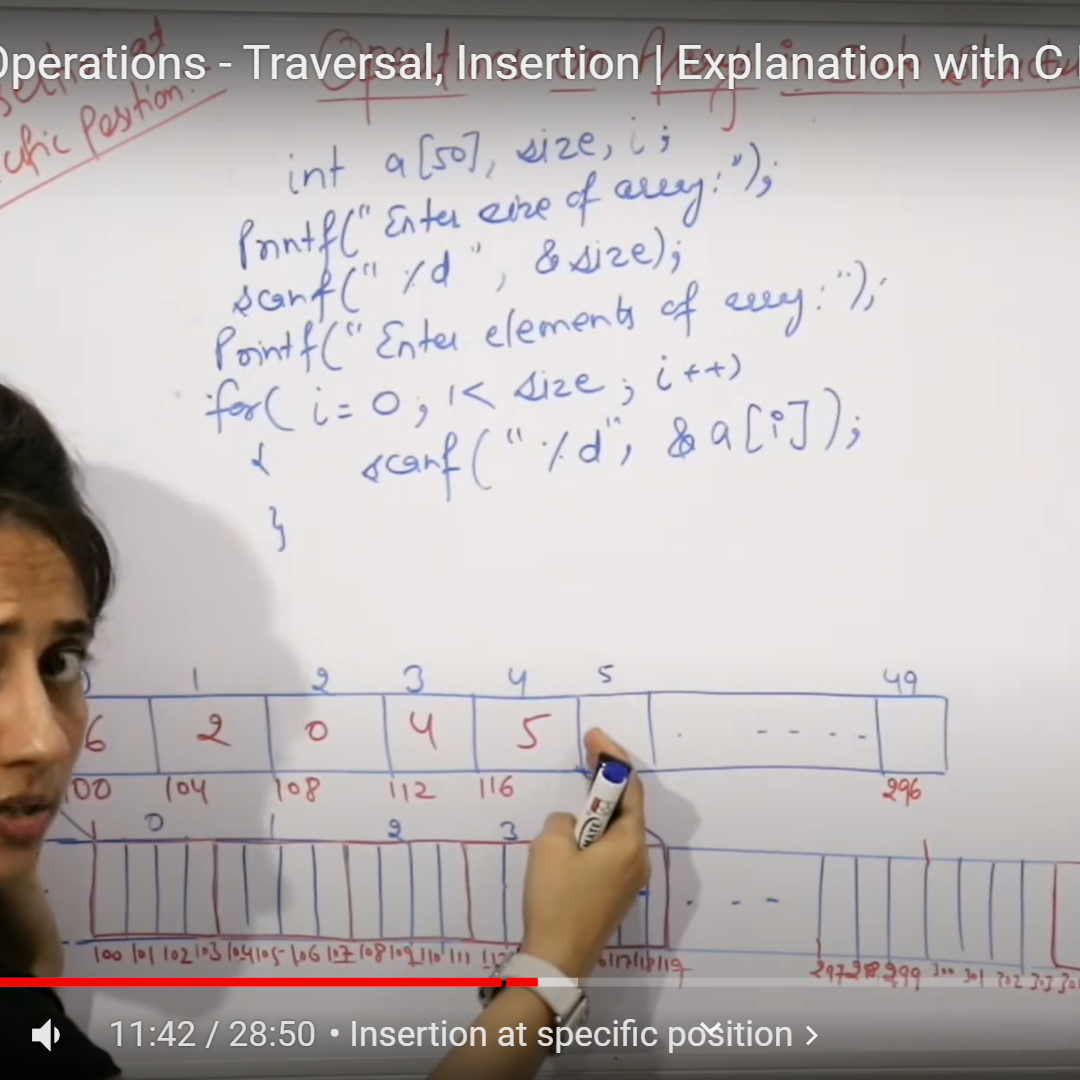 Operations - Traversal, Insertion | Explanation with C
Position.
int a[50], size, i ;
Printf(" Enter size of array: ");
scanf(" %d ", &size);
Printf(" Enter elements of array: ");
for( i= 0 ; i< size ; i++)
{ scanf( " %d", &a[i]);
}
1 2 3 4 5 49
6 2 0 4 5 . - - - -
100 104 108 112 116 296
0 1 2 3
. - -
100 101 102 103 104 105 106 107 108 109 110 111 118 119 297 298 299 300 301 302 303
MATE
11:42 / 28:50 • Insertion at specific position >